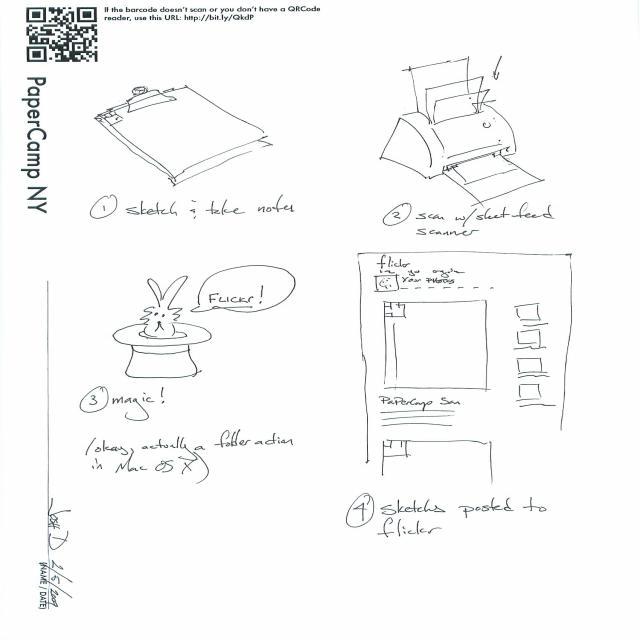 If the barcode doesn't scan or you don't have a QRCode
reader, use this URL: http://bit.ly/QkdP
PaperCamp NY
1 sketch & take notes
2 scan w/sheet feed
scanner
FLICKR!
3 magic!
(okay, actually a folder action
in Mac OS X)
flickr
Your Photos
PaperCamp Scan
4 sketchs posted to
flickr
Josh D 2/5/2009
(NAME / DATE)